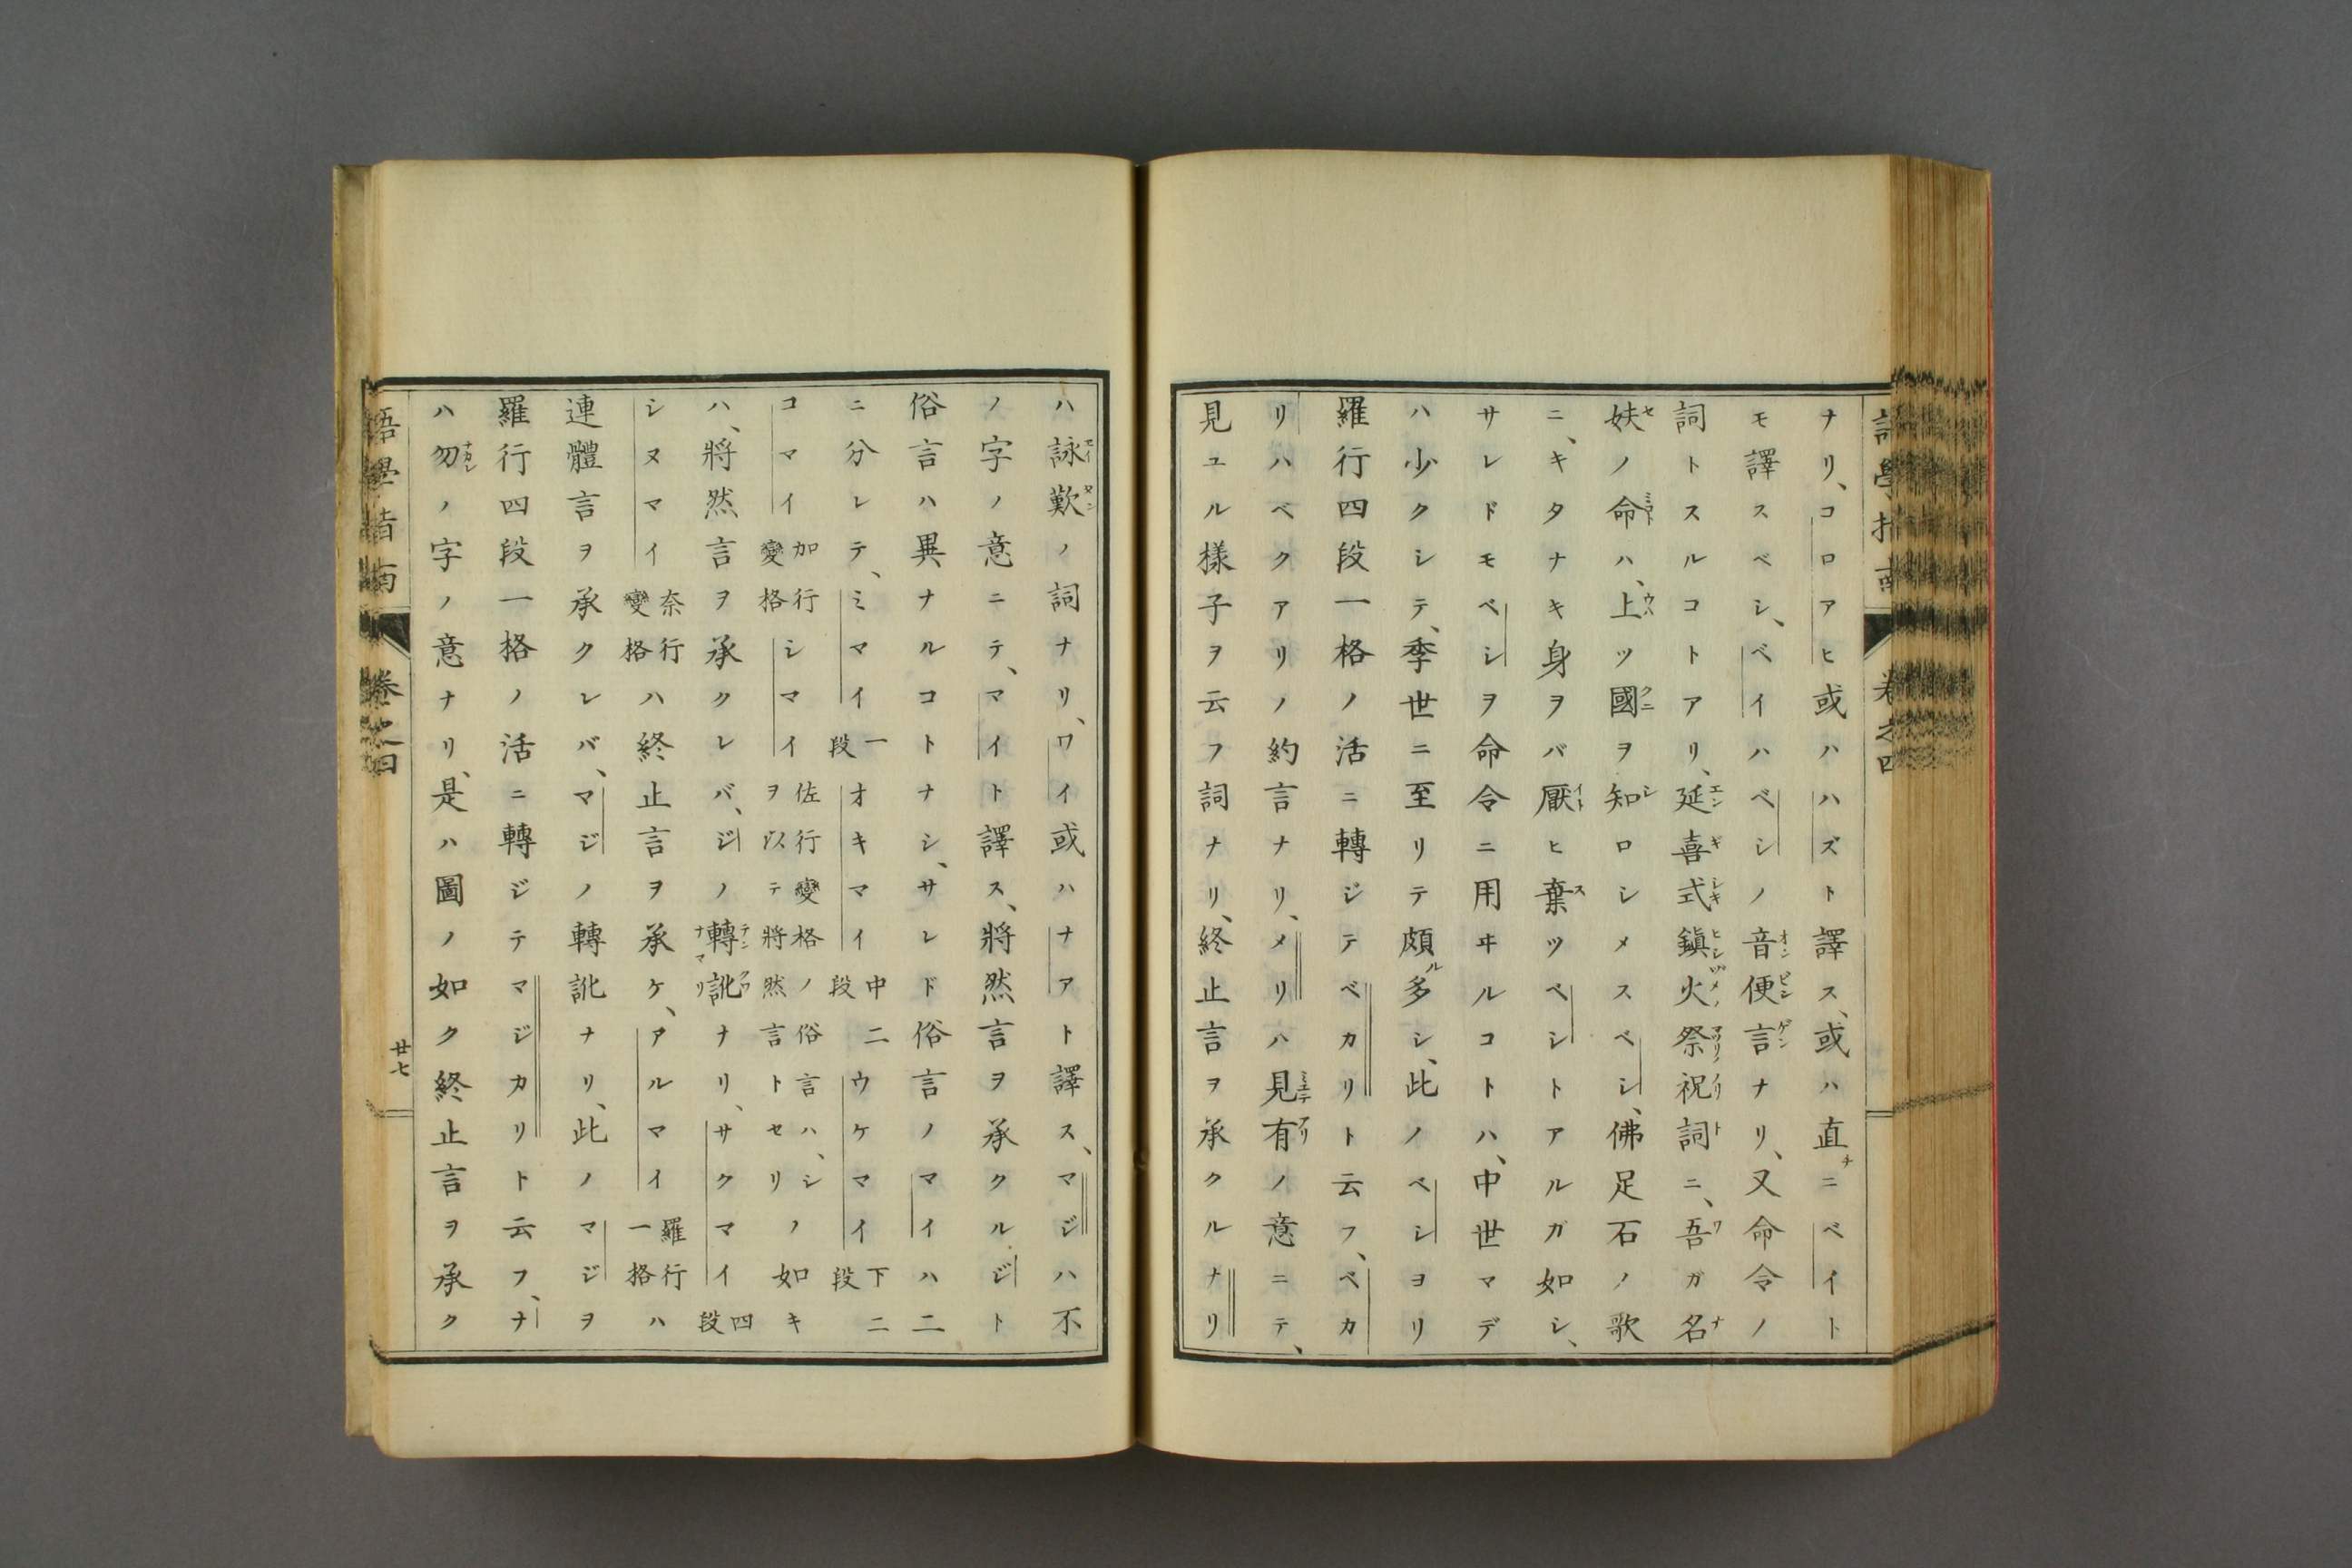 ナリ、コロアヒ或ハハズト譯ス、或ハ直ニベイト
モ譯スベシ、ベイハベシノ音便言ナリ、又命令ノ
詞トスルコトアリ、延喜式鎭火祭祝詞ニ、吾ガ名
妋ノ命ハ、上ツ國ヲ知ロシメスベシ、佛足石ノ歌
ニ、キタナキ身ヲバ厭ヒ棄ツベシトアルガ如シ、
サレドモベシヲ命令ニ用ヰルコトハ、中世マデ
ハ少クシテ、季世ニ至リテ頗ル多シ、此ノベシヨリ
羅行四段一格ノ活ニ轉ジテベカリト云フ、ベカ
リハベクアリノ約言ナリ、メリハ見有ノ意ニテ、
見ユル樣子ヲ云フ詞ナリ、終止言ヲ承クルナリ
ハ詠歎ノ詞ナリ、ワイ或ハナアト譯ス、マジハ不
ノ字ノ意ニテ、マイト譯ス、將然言ヲ承クルジト
俗言ハ異ナルコトナシ、サレド俗言ノマイハ二
ニ分レテ、ミマイ一段オキマイ中二段ウケマイ下二段
コマイ加行變格シマイ佐行變格ノ俗言ハ、シノ如キヲ以テ將然言トセリ
ハ、將然言ヲ承クレバ、ジノ轉訛ナリ、サクマイ四段
シヌマイ奈行變格ハ終止言ヲ承ケ、アルマイ羅行一格ハ
連體言ヲ承クレバ、マジノ轉訛ナリ、此ノマジヲ
羅行四段一格ノ活ニ轉ジテマジカリト云フ、ナ
ハ勿ノ字ノ意ナリ、是ハ圖ノ如ク終止言ヲ承ク
語學指南 卷之四 廿七